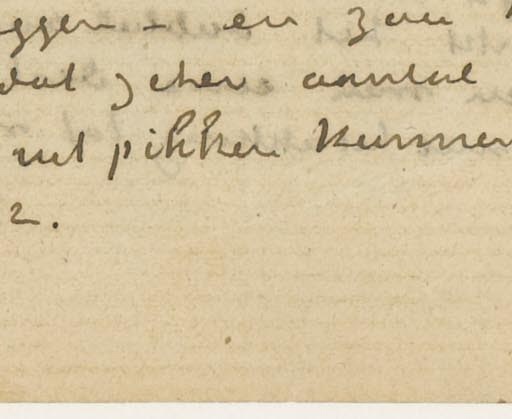 ggen – en zou
dat zeker aantal
uit pikken kunnen
2.